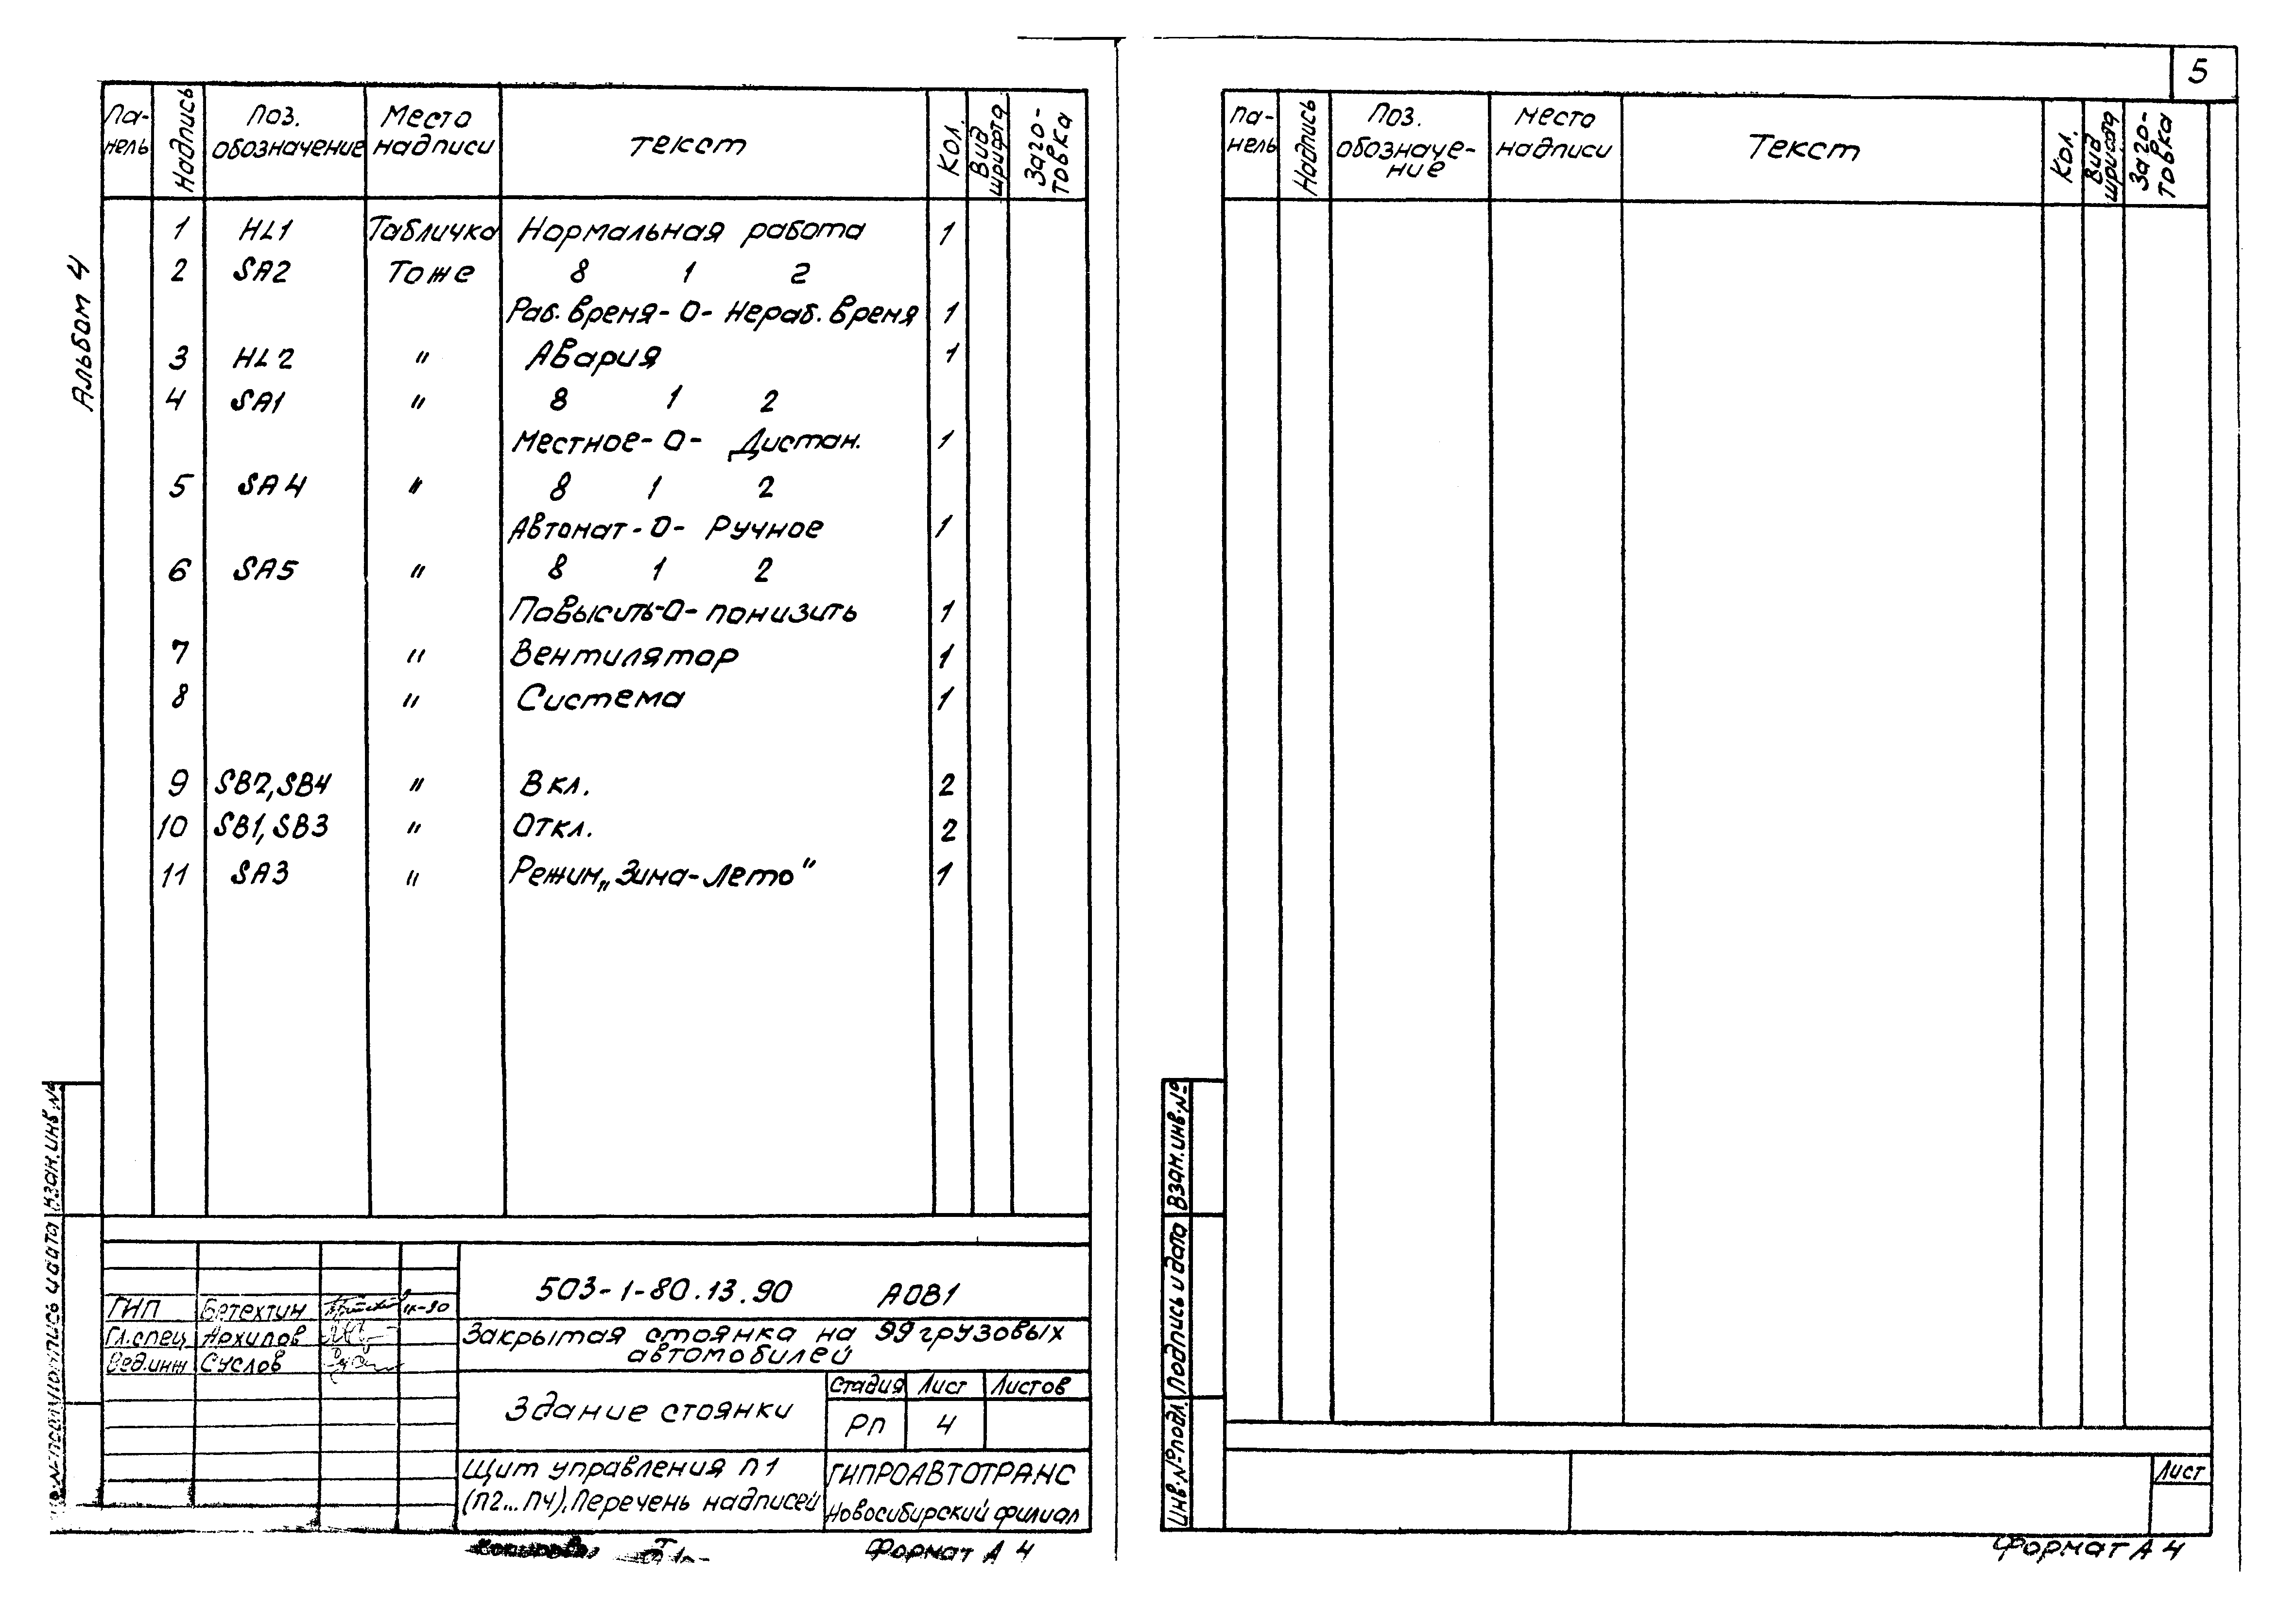 5
Альбом 4
Па-
нель
Надпись
Поз.
обозначение
Место
надписи
текст
Кол.
Вид
шрифта
Заго-
товка
1 HL1 Табличка Нормальная работа 1
2 SA2 Тоже 8 1 2
Раб. время-0-Нераб. время 1
3 HL2 " Авария 1
4 SA1 " 8 1 2
Местное-0- Дистан. 1
5 SA4 " 8 1 2
Автомат-0- Ручное 1
6 SA5 " 8 1 2
Повысить-0-понизить 1
7 " Вентилятор 1
8 " Система 1
9 SB2, SB4 " Вкл. 2
10 SB1, SB3 " Откл. 2
11 SA3 " Режим „Зима-Лето" 1
Взам.инв.№
Подпись и дата
503-1-80.13.90 АОВ1
ГИП Бетехтин
Гл.спец Архипов
Вед.инж Суслов
Закрытая стоянка на 99 грузовых
автомобилей
Здание стоянки
Стадия Лист Листов
РП 4
Щит управления П1
(П2...П4). Перечень надписей
ГИПРОАВТОТРАНС
Новосибирский филиал
Копировал
Формат А4
Па-
нель
Надпись
Поз.
обозначе-
ние
Место
надписи
Текст
Кол.
Вид
шрифта
Заго-
товка
Взам.инв.№
Подпись и дата
Инв.№подл.
Лист
Формат А4